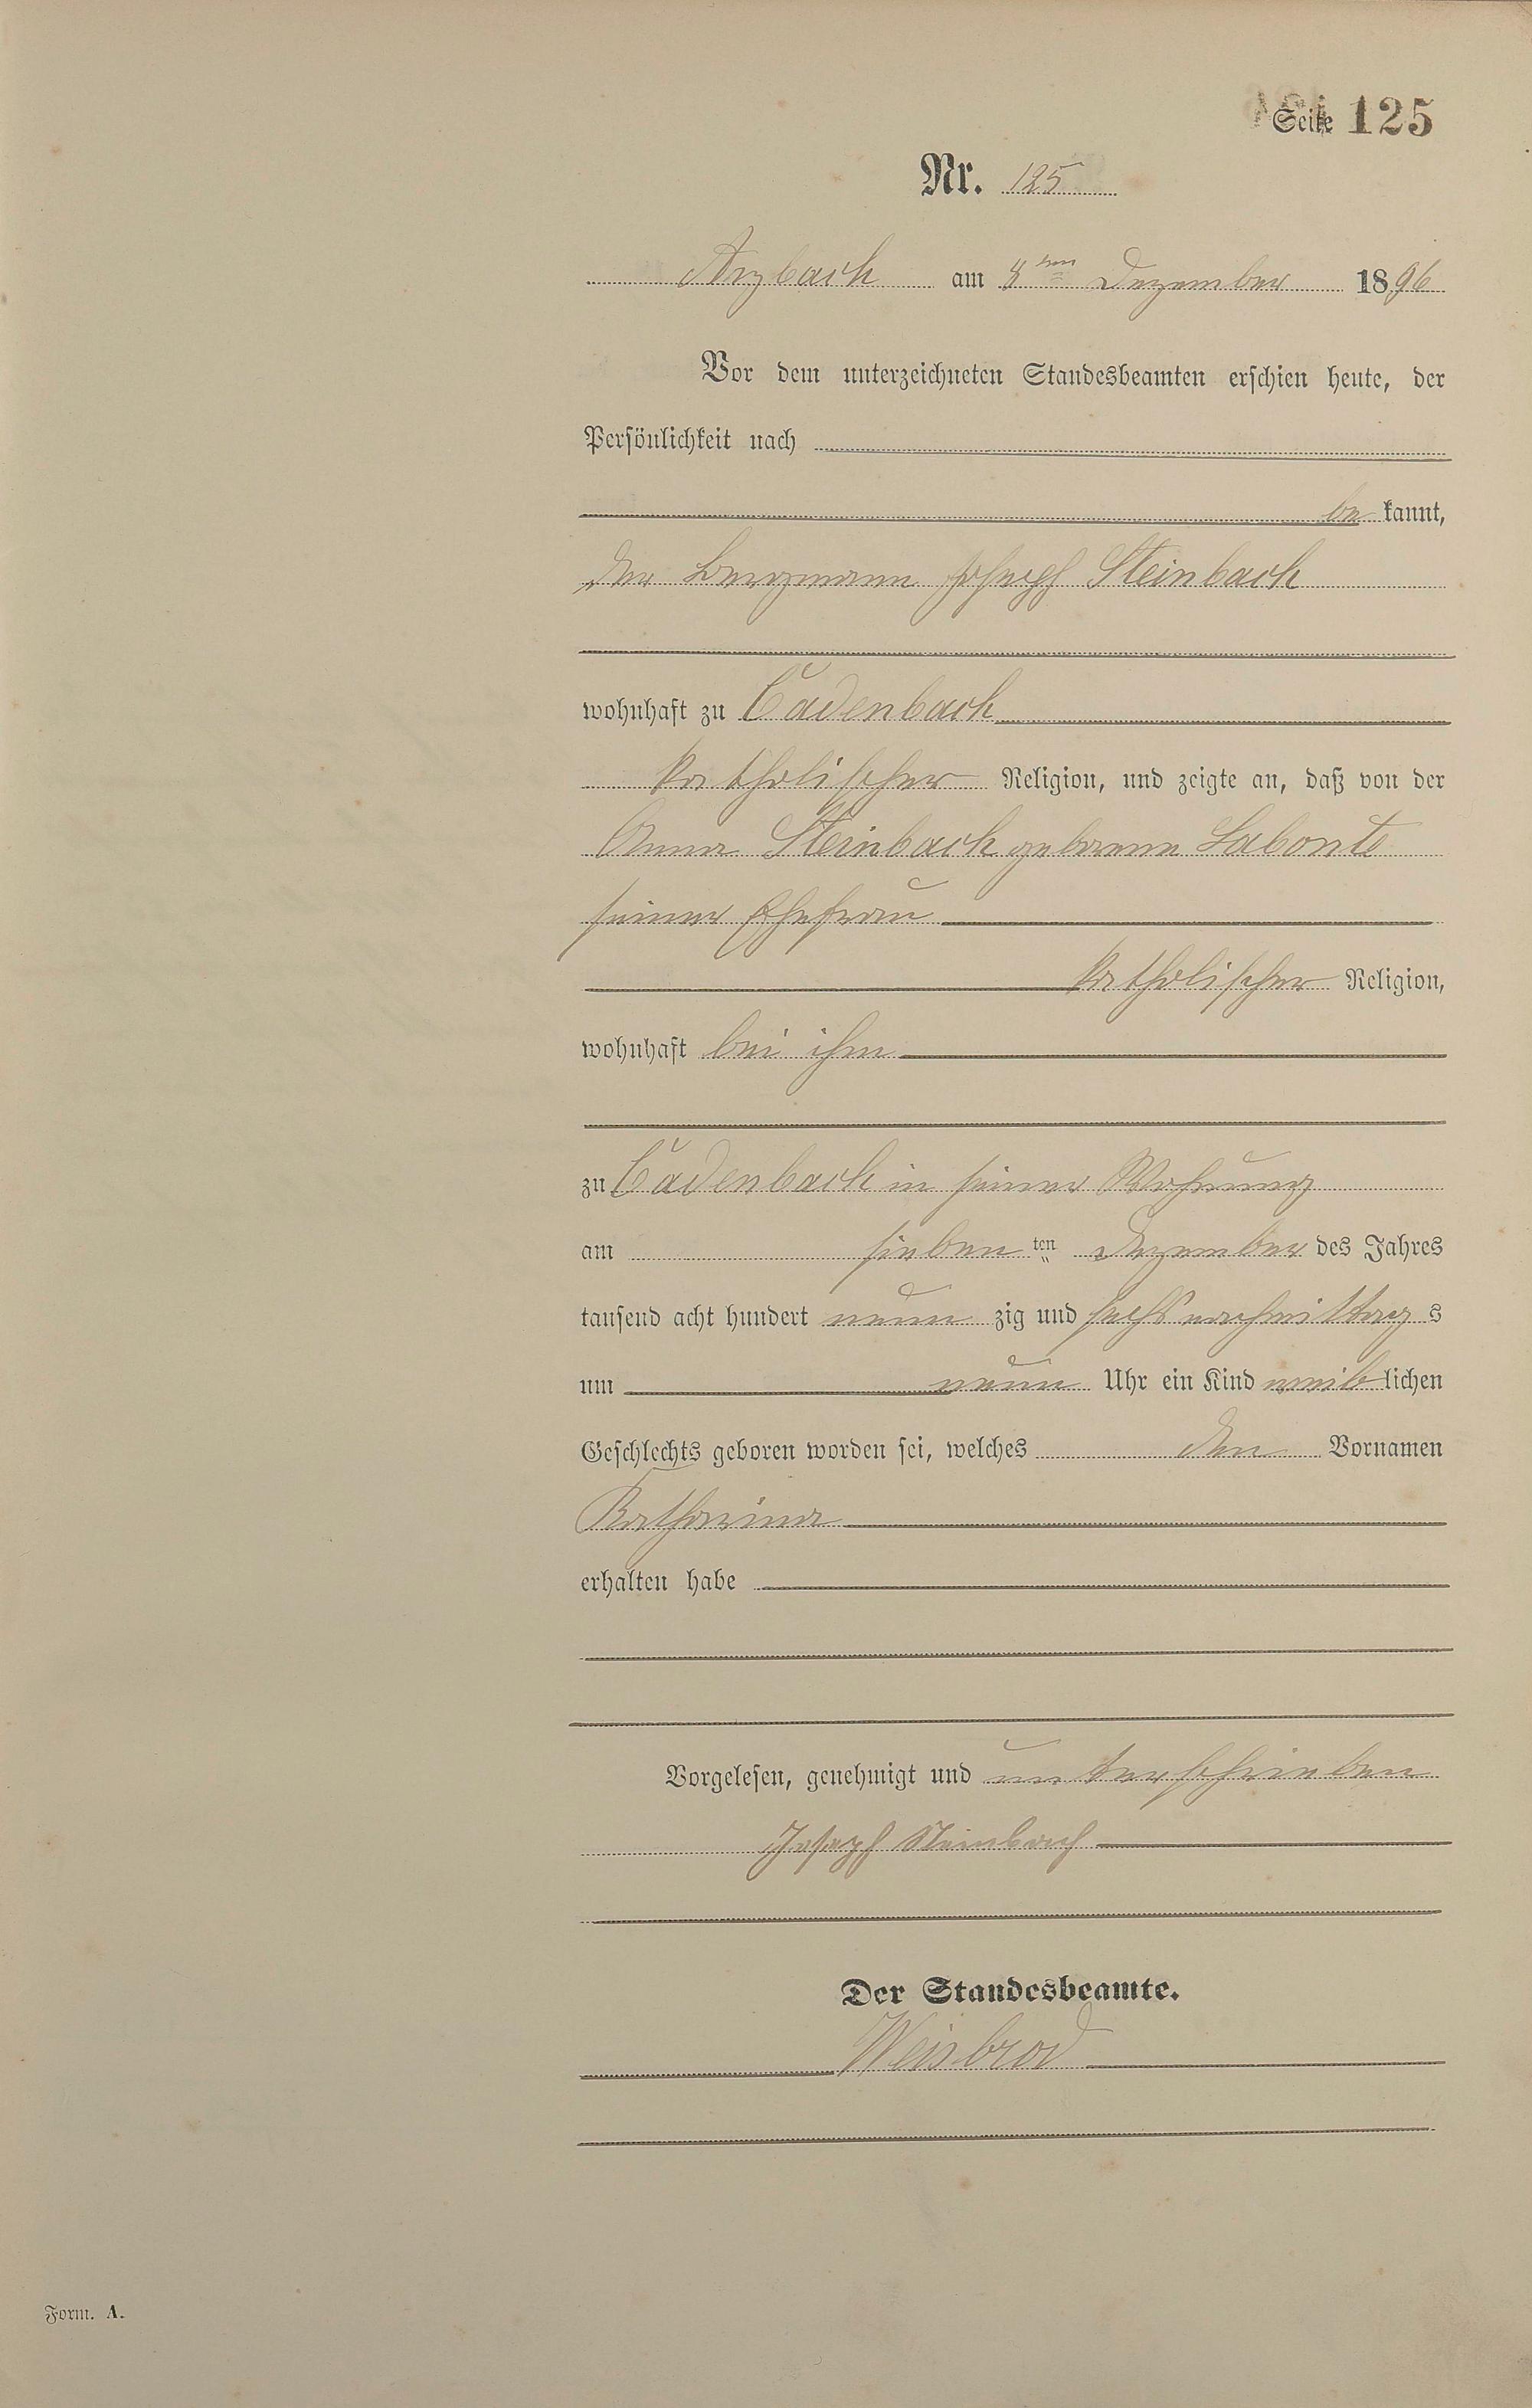 Seite 125
Nr. 125
Arzbach am 8ten Dezember 1896
Vor dem unterzeichneten Standesbeamten erschien heute, der
Persönlichkeit nach
bekannt,
der Bergmann Joseph Steinbach
wohnhaft zu Cadenbach
katholischer Religion, und zeigte an, daß von der
Anna Steinbach geborene Labonte
seiner Ehefrau
katholischer Religion,
wohnhaft bei ihm
zu Cadenbach in seiner Wohnung
am siebenten Dezember des Jahres
tausend acht hundert neunzig und sechs nachmittags
um neun Uhr ein Kind weiblichen
Geschlechts geboren worden sei, welches den Vornamen
Katharina
erhalten habe
Vorgelesen, genehmigt und unterschrieben
Joseph Steinbach
Der Standesbeamte.
Weisbrod
Form. A.